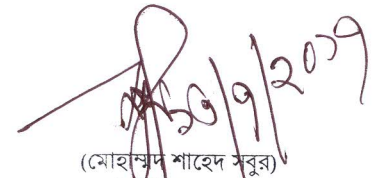 ১৩/৭/২০১৭
(মোহাম্মদ শাহেদ সবুর)